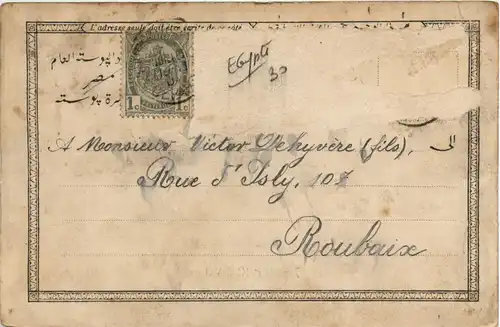 L'adresse seule doit être écrite de ce côté
البوستة العام
مصر
تذكرة بوستة
1c 1c
Egypte
30
A Monsieur Victor Dehyvère (fils), الى
Rue d'Isly, 107
Roubaix